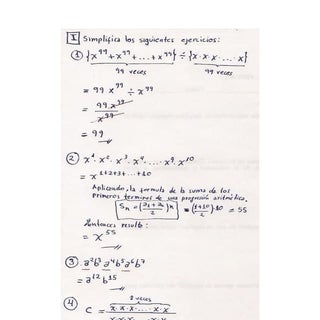 I Simplifica los siguientes ejercicios:
① {x⁹⁹+x⁹⁹+...+x⁹⁹} ÷ {x·x·x·...·x}
99 veces 99 veces
= 99 x⁹⁹ ÷ x⁹⁹
= 99 x⁹⁹
x⁹⁹
= 99
② x¹·x²·x³·x⁴·...·x⁹·x¹⁰
= x¹⁺²⁺³⁺···⁺¹⁰
Aplicando, la formula de la suma de los
primeros terminos de una progresión aritmética.
Sₙ = (a₁+aₙ/2)n = (1+10/2)·10 = 55
Entonces resulta:
= x⁵⁵
③ a²b³a⁴b⁵a⁶b⁷
= a¹²b¹⁵
8 veces
④ C = x·x·x·...·x·x